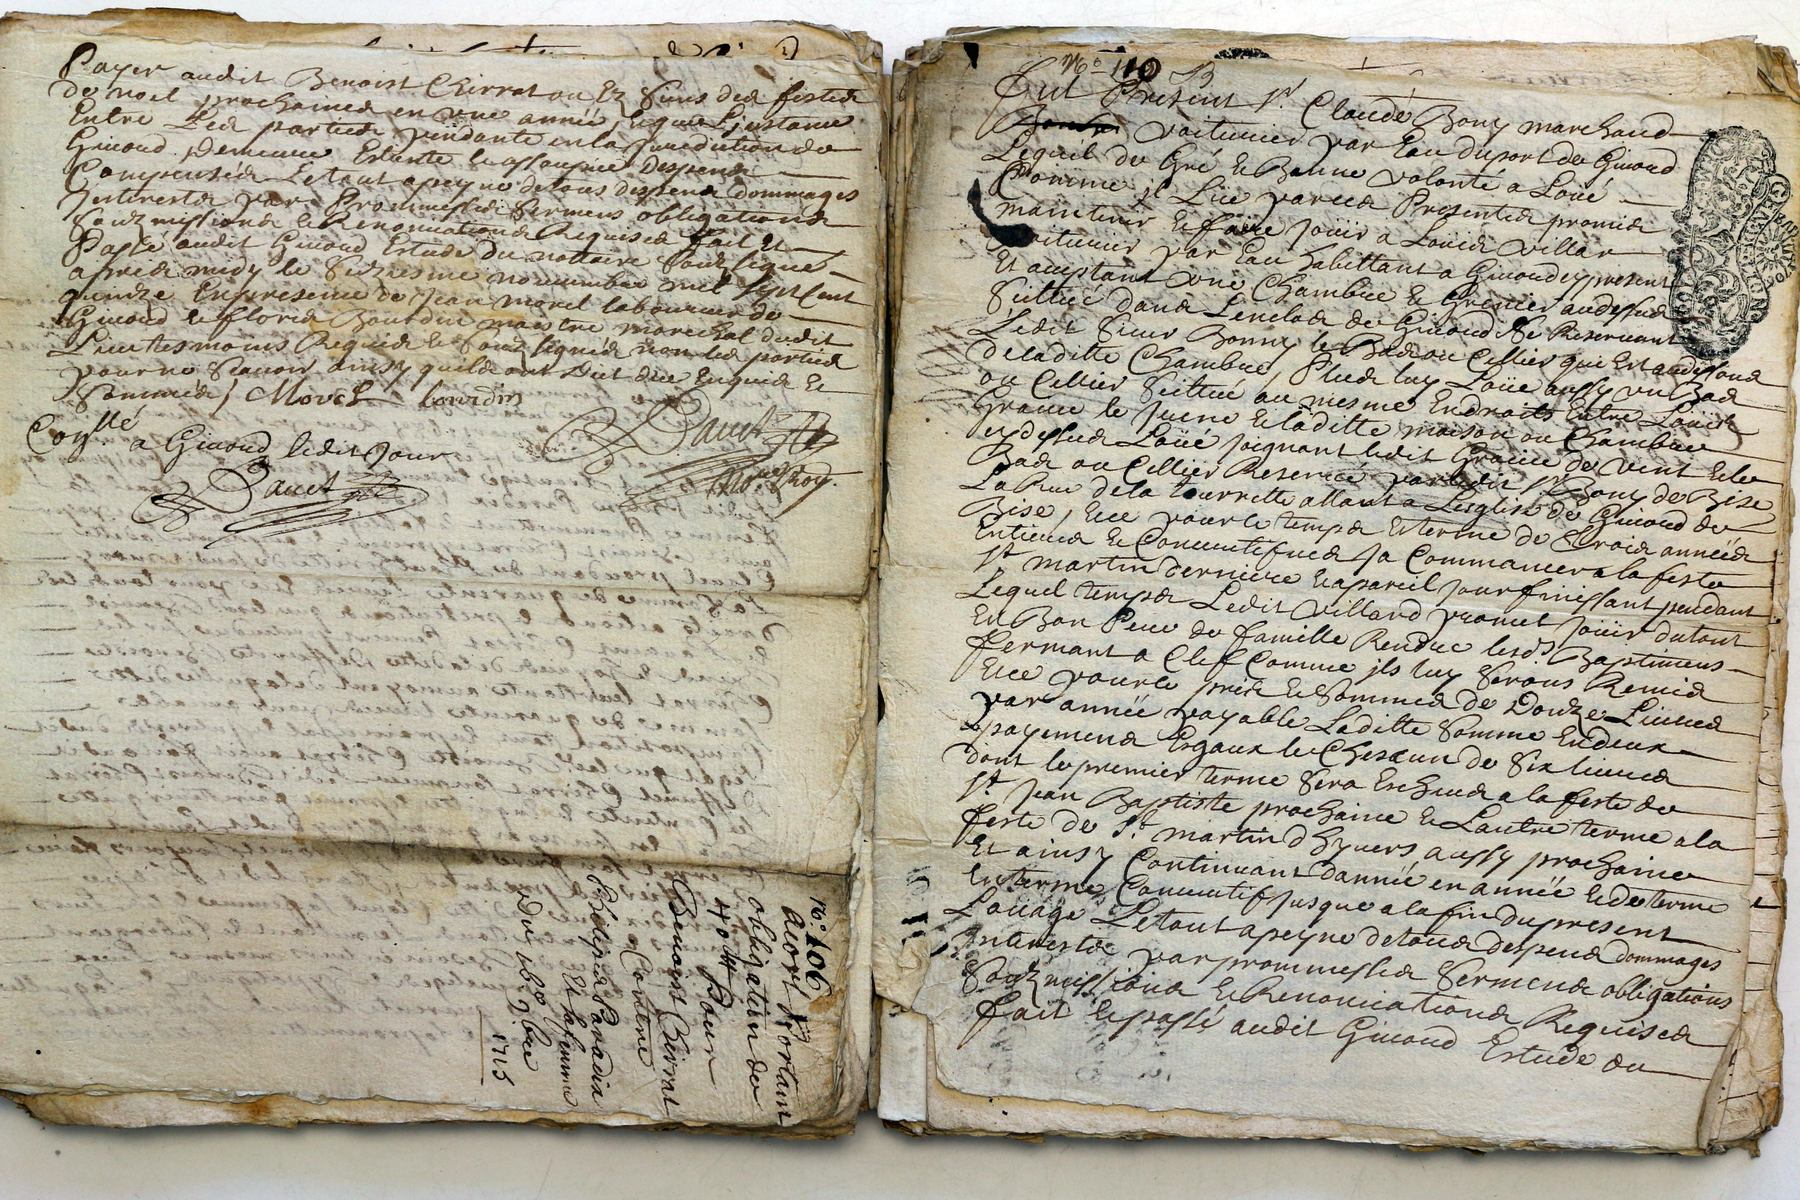 Payer audit Benoist Chirrat ou Ez Siens des festes
de noel prochaines en une année
Entre Les parties pandante en la Juridiction de
Giuord demeure Estinte et assoupie despens
Compensés Le tout a peyne de tous despens dommages
Interests par Prommesses sermens obligations
Soubzmissions & Renonciations Requises fait Et
Passé audit Giuord Estude du nottaire soubsigné
apres midy le Seziesme novembre mil sept cent
quinze En presence de Jean Morel laboureur de
Giuord & Bourdin maistre marechal dudit
Lieu tesmoins Requis & soubsignés non les parties
pour ne scavoir ainsy quils ont dit de ce Enquis Et
Sommés / Morel bourdin
Collé
a Giuord ledit Jour
Not. Roy.
N° 106
Acort Portant
obligation de
40 pour
Benoist Chirrat
Contre
Philipe Paradis
Et sa femme
Du 16e 9bre
1715
N° 110
Fut Présent Sr Claude Bony marchand
voiturier par Eau du port de Giuord
Lequel de Gré & Bonne volonté a Loüé
Comme il Lüe par ces Presentes promis
maintenir & faire Joüir a Loüis Villar
voiturier par Eau habittant a Giuord icy present
Et acceptant une Chambre & Grenier au dessus
Scittué dans Lenclos de Giuord Se Reservant
Ledit Sieur Bonny le Bas ou Cellier que Est au dessous
de laditte Chambre, Plus luy Loüe aussy un Bas
ou Cellier Scittué au mesme Endroit Entre Loüis
le Jeune & laditte maison ou Chambre
cy dessus Loüe joignant ledit de vent & le
Bas ou Cellier Reservé par ledit Sr Bony de Bise
La Rue de la tourrette allant a Leglise de Giuord de
Bise, & ce pour le temps & terme de trois années
Entieres & Consecutifves Ja Commancer a la feste
St martin derniere & a pareil Jour finissant pendant
Lequel temps Ledit Villard promet Joüir du tout
En Bon Pere de famille Rendre lesds Baptimens
fermant a Clef Comme ils luy Serons Remis
& ce pour le prix & Somme de Douze Livres
par année payable Laditte Somme En deux
payemens Esgaux & Chescun de Six livres
dont le premier terme sera Escheu a la feste de
St Jean Baptiste prochaine & Lautre terme a la
feste de St martin dhyvers aussy prochaine
Et ainsy Continuant dannée en année & de terme
En terme Consecutif Jusque a la fin du present
Loüage Le tout a peyne de tous despens dommages
Interests par prommesses sermens obligations
Soubzmissions & Renonciations Requises
fait & passé audit Giuord Estude du